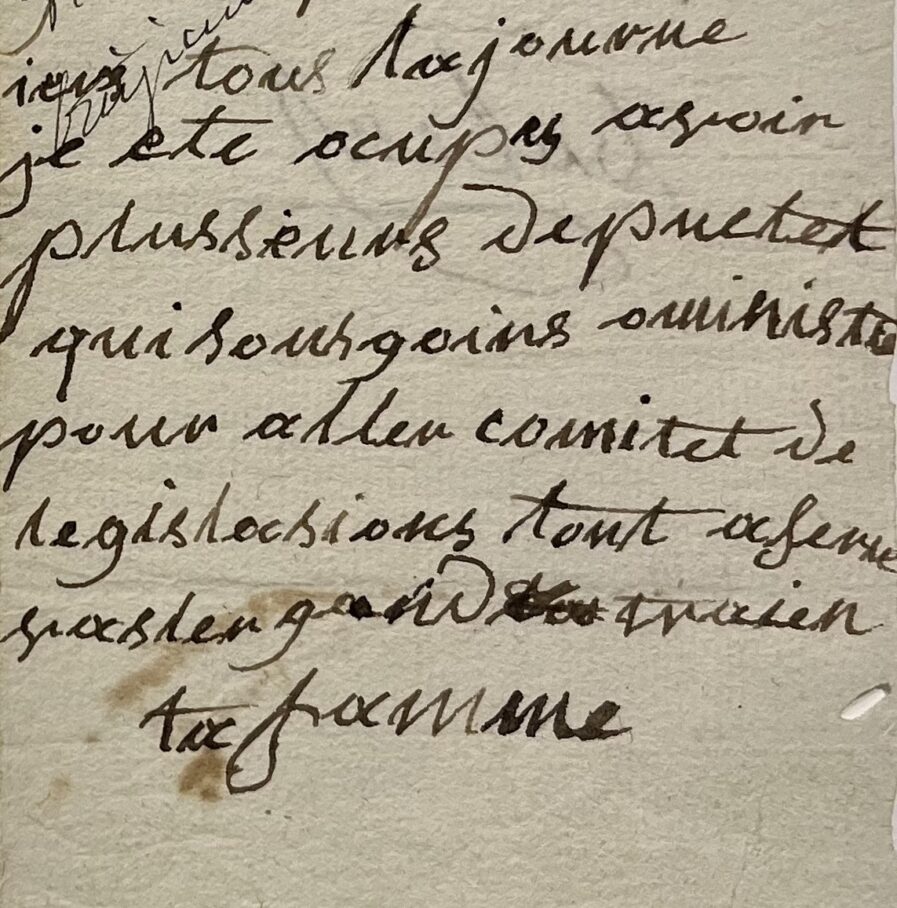 ier tous la journe
je ete ocupes avoir
plussieurs deputet
qui sous goins o ministe
pour aller comitet de
legislasions tout afere
vas ler gand traien
ta famme